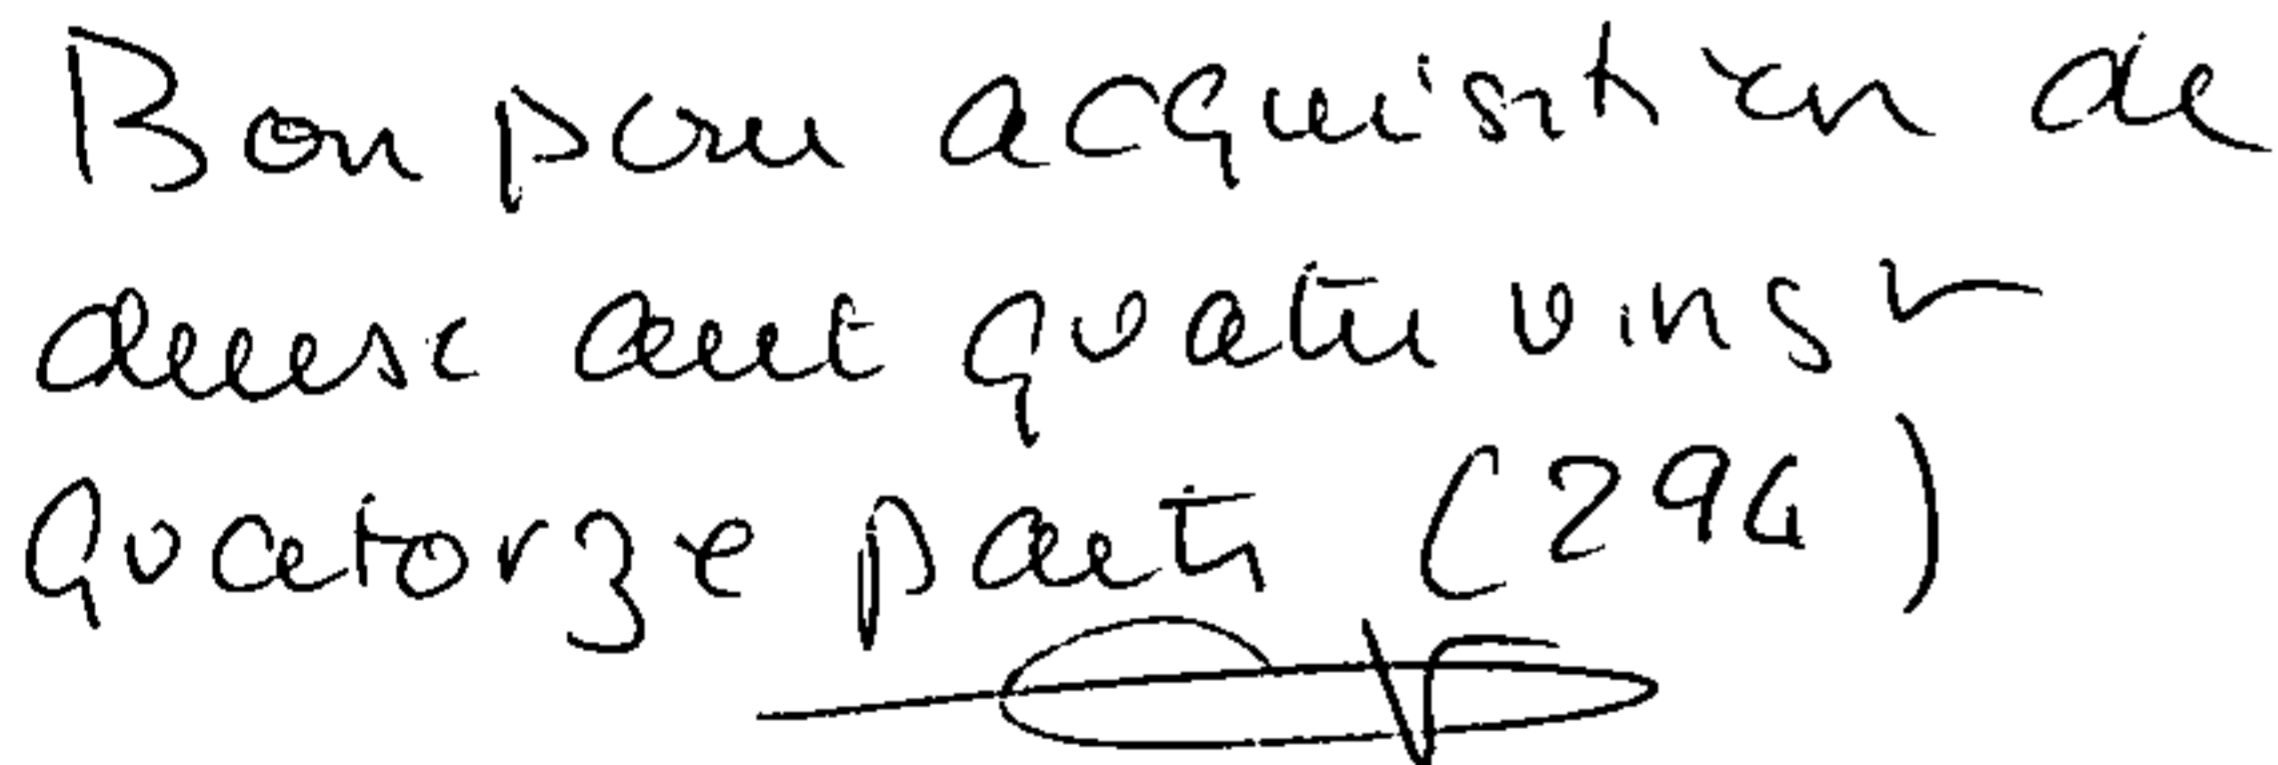 Bon pour acquisition de
deux cent quatre vingt
quatorze parts (294)